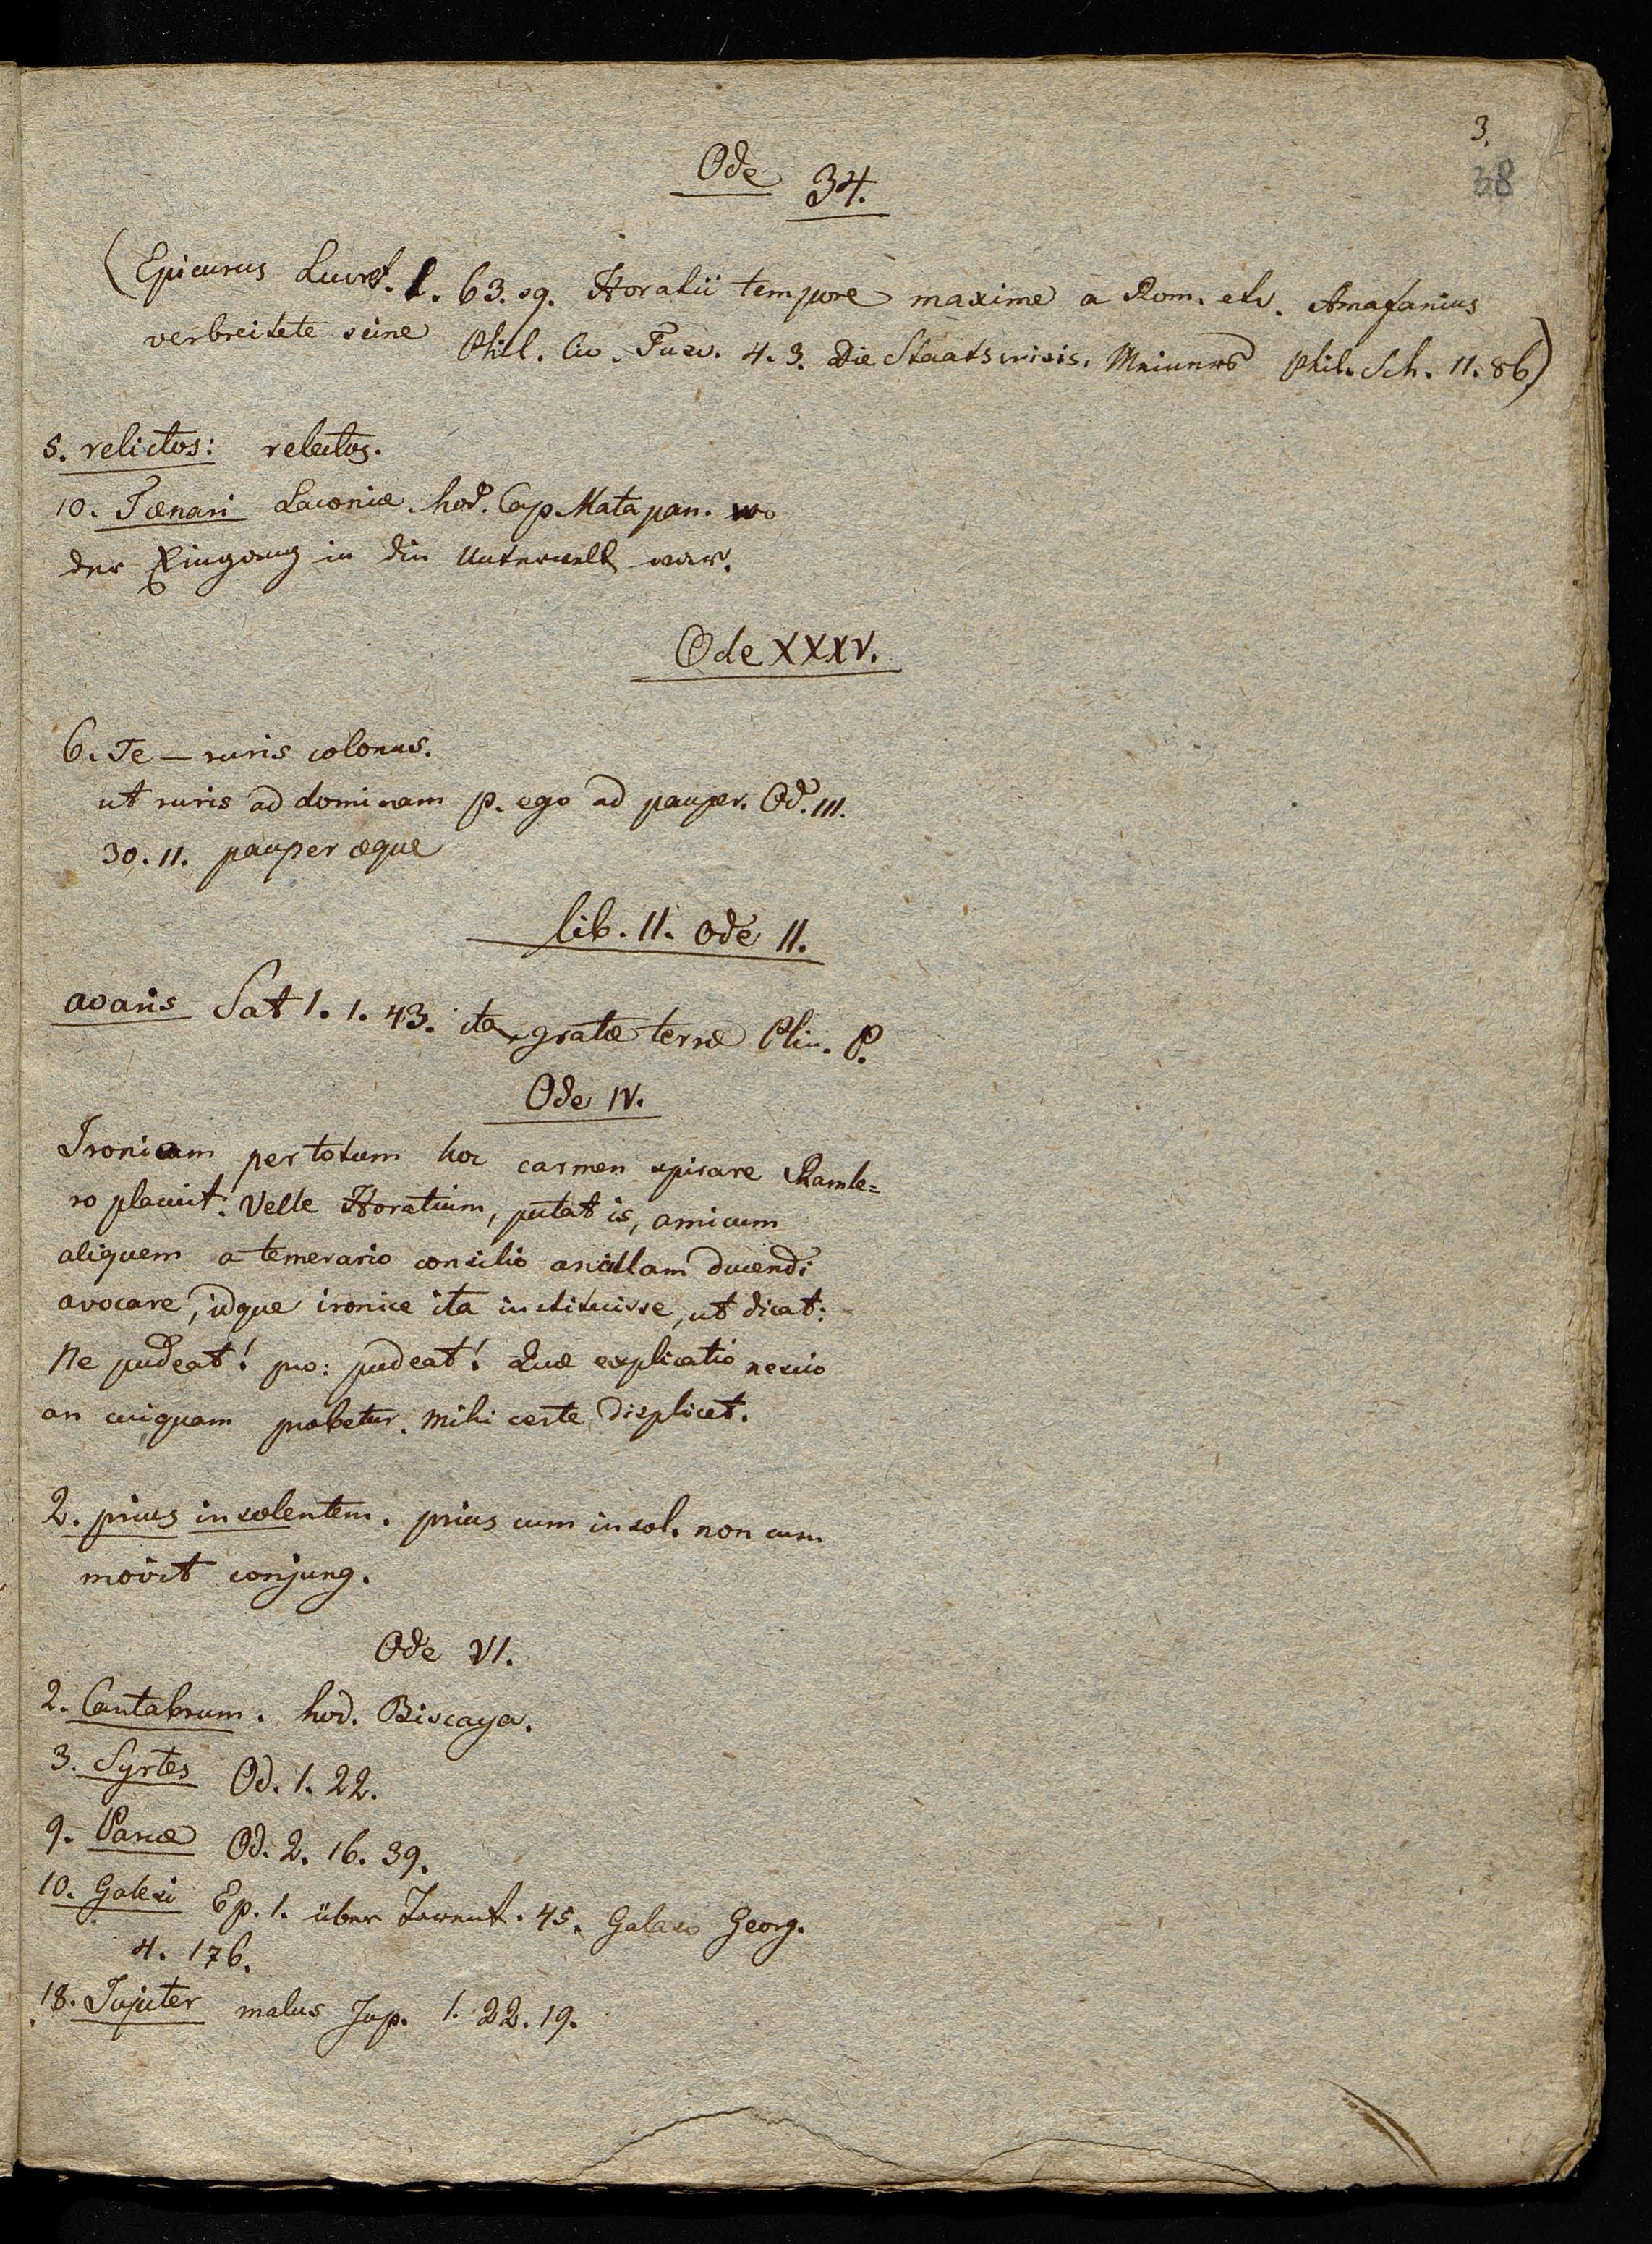 3.
38
Ode 34.
(Epicurus Lucret. 1. 63. sq. Horatii tempore maxime a Rom. etc. Amafanius
verbreitete seine Phil. Cic. Tusc. 4. 3. Die Staatscrisis. Meiners Phil. Sch. 11. 86)
5. relictos: relectos.
10. Tænari Laconiæ. hod. Cap Matapan. wo
der Eingang in die Unterwelt war.
Ode XXXV.
6. Te — ruris colonus.
ut ruris ad dominam p. ego ad pauper. Od. III.
30. 11. pauper æquæ
lib. II. Ode II.
avaris Sat 1. 1. 43. ita gratæ terræ Plin. P.
Ode IV.
Ironicam per totum hoc carmen spirare Ramle=
ro placuit. Velle Horatium, putat is, amicum
aliquem a temerario consilio ancillam ducendi
avocare, idque ironice ita instituisse, ut dicat:
Ne pudeat! pro: pudeat! Quæ explicatio nescio
an cuiquam probetur. Mihi certe displicet.
2. prius insolentem. prius cum insol. non cum
movit conjung.
Ode VI.
2. Cantabrum. hod. Biscaya.
3. Syrtes Od. 1. 22.
9. Parcæ Od. 2. 16. 39.
10. Galesi Ep. 1. über Tarent. 45. Galaso Georg.
4. 176.
18. Jupiter malus Jup. 1. 22. 19.